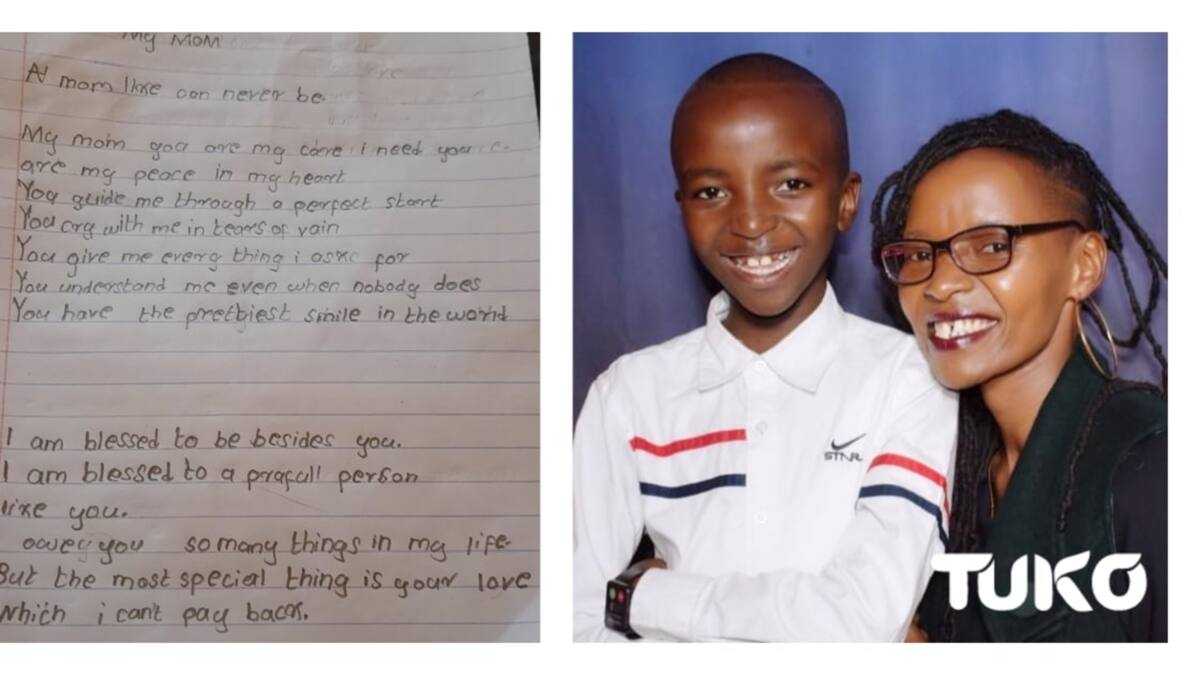 My MOM
A mom like can never be
My mom you are my core i need you
are my peace in my heart
You guide me through a perfect start
You cry with me in tears of vain
You give me every thing i aske for
You understand me even when nobody does
You have the prettiest smile in the world
I am blessed to be besides you.
I am blessed to a person
like you.
owey you so many things in my life.
But the most special thing is your love
which i can't pay back.
STAR
TUKO